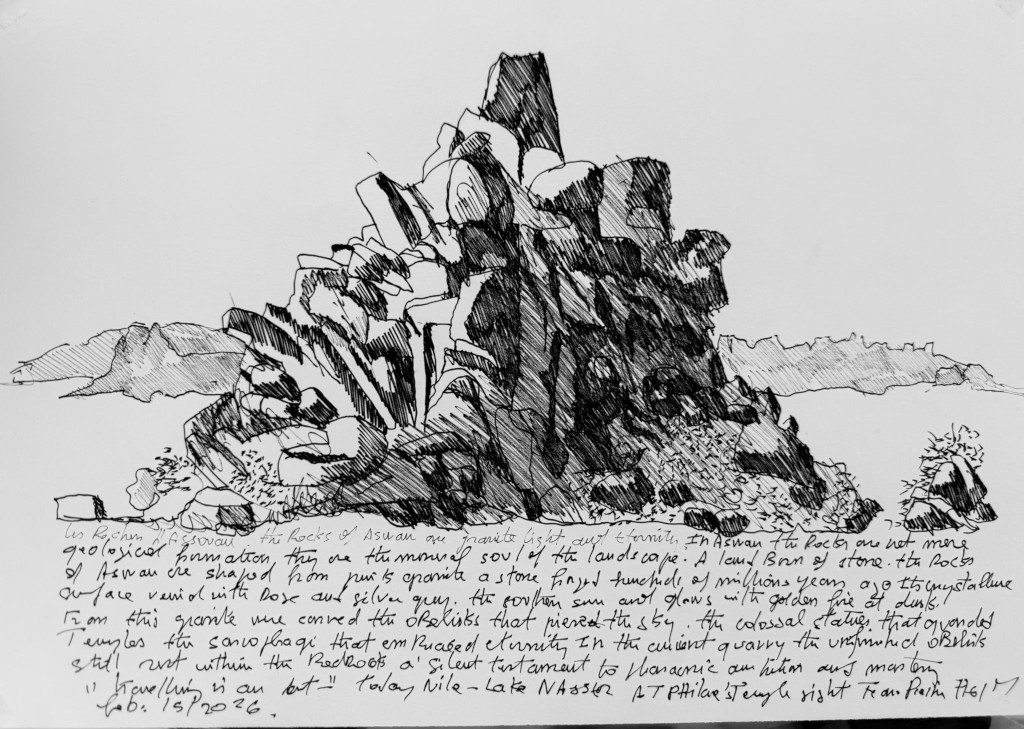 Les Rochers d'Assouan the Rocks of Aswan are granite light and Eternity. In Aswan the Rocks are not mere
geological formation they are the soul of the landscape. A land Born of stone. the Rocks
of Aswan are shaped from granite a stone forged hundreds of millions years ago Its crystalline
surface veined with Rose and silver grey. the southern sun and glows with golden fire at dusk.
From this granite were carved the obelisks that pierced the sky. the colossal statues that guarded
Temples the sarcophagi that embraced eternity In the ancient quarry the unfinished obelisk
still rest within the a silent testament to pharaonic ambition and mastery
" travelling is an art " today Nile - Lake NASSER AT PHILAE'S Temple sight
Feb. 15/2026.